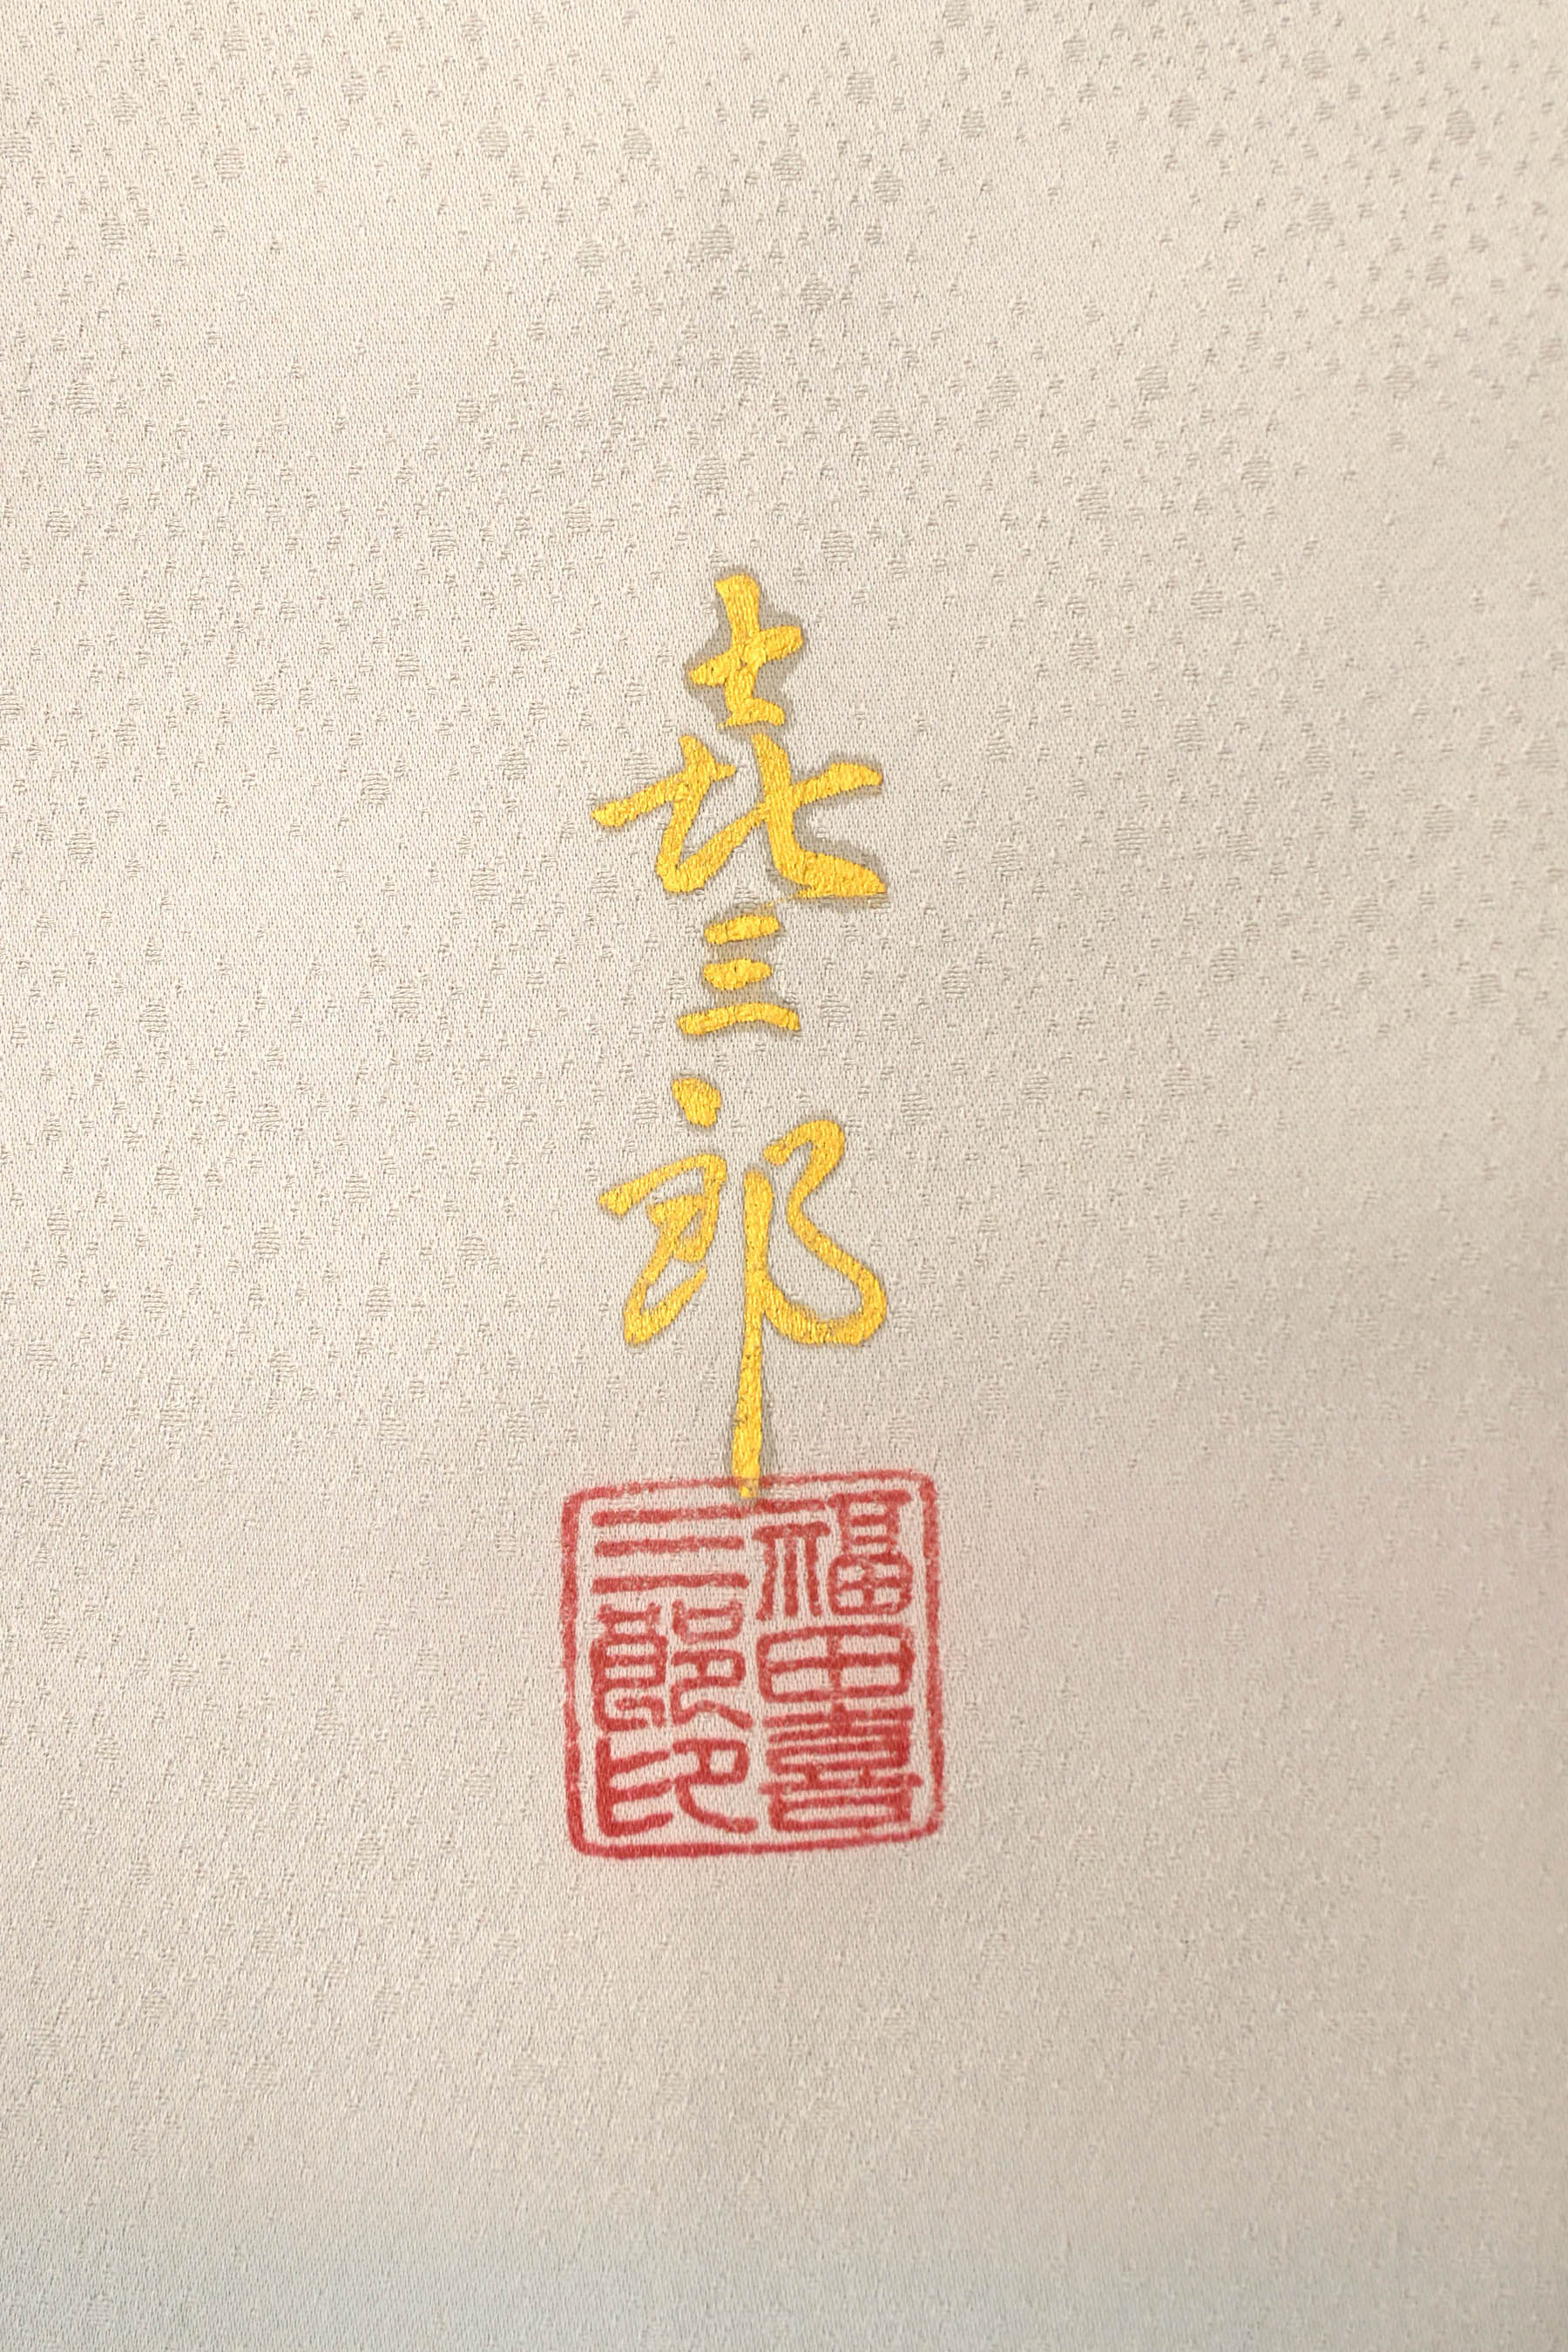 喜三郎
福田喜
三郎印